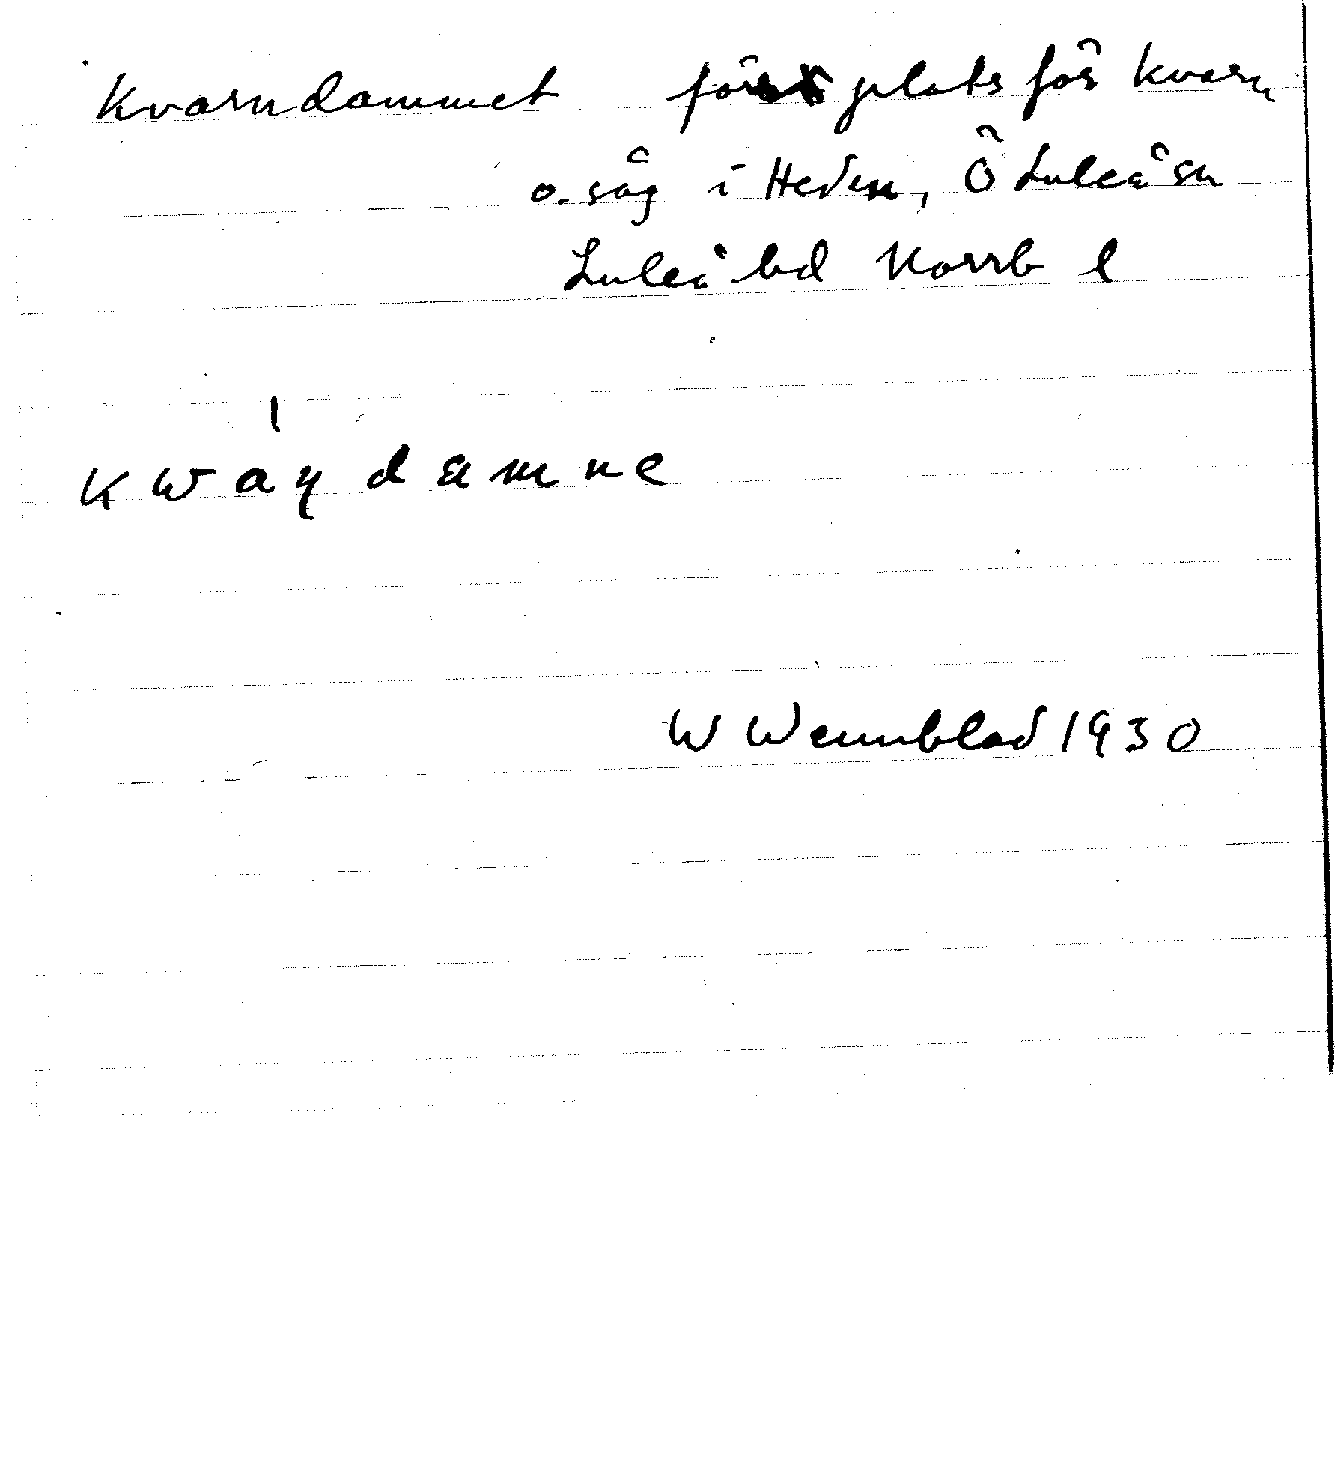 Kvarndammet förr plats för kvarn
o. såg i Heden, Ö Luleå sn
Luleå tsd Norrb l
kwan̩damne
W Wennblad 1930